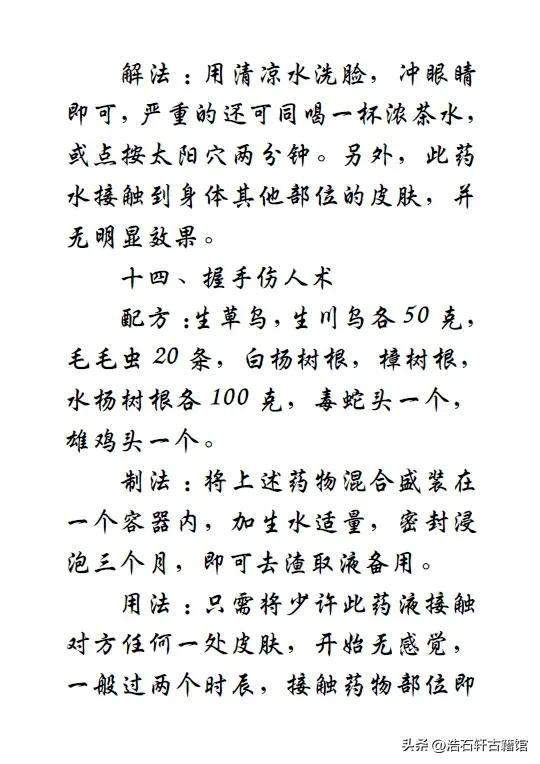 解法:用清凉水洗脸,冲眼睛
即可,严重的还可同喝一杯浓茶水,
或点按太阳穴两分钟。另外,此药
水接触到身体其他部位的皮肤,并
无明显效果。
十四、握手伤人术
配方:生草乌,生川乌各50克,
毛毛虫20条,白杨树根,樟树根,
水杨树根各100克,毒蛇头一个,
雄鸡头一个。
制法:将上述药物混合盛装在
一个容器内,加生水适量,密封浸
泡三个月,即可去渣取液备用。
用法:只需将少许此药液接触
对方任何一处皮肤,开始无感觉,
一般过两个时辰,接触药物部位即
头条 @浩石轩古籍馆